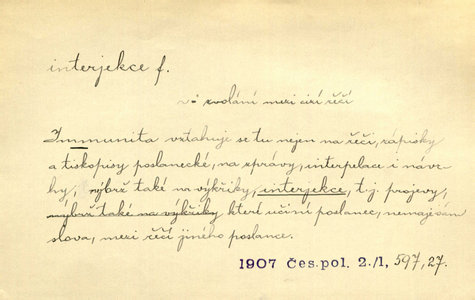 interjekce f.
zvolání mezi cizí řečí
Immunita vztahuje se tu nejen na řeči, zápisky
a tiskopisy poslanecké, na zprávy, interpelace i návr-
hy, nýbrž také na výkřiky, interjekce, t. j. projevy,
nýbrž také na výkřiky které učiní poslanec, nemaje sám
slova, mezi řečí jiného poslance.
1907 Čes. pol. 2./1, 597, 27.